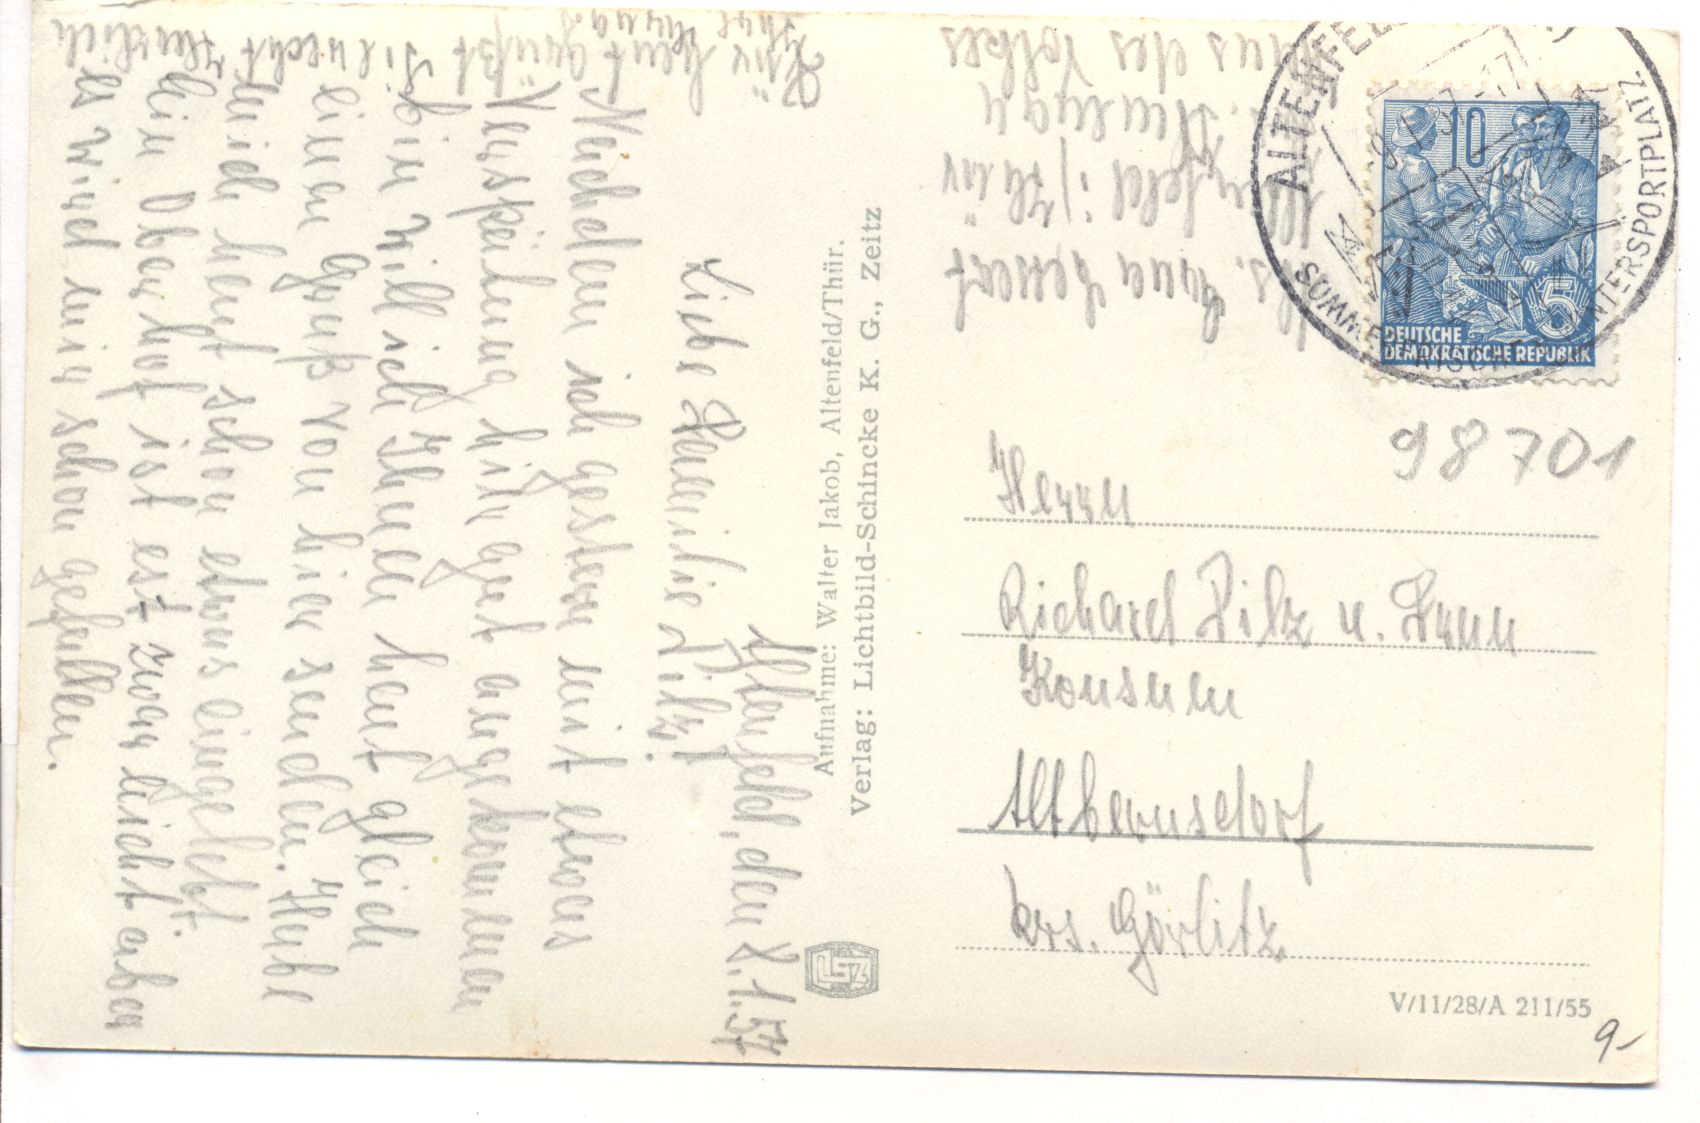 Altenfeld, den 8.1.57
Liebe Familie Pilz!
Nachdem ich gestern mit etwas
Verspätung hir gut angekommen
bin will ich Ihnen heut gleich
einen Gruß von hier senden. Habe
mich heut schon etwas eingelebt.
Ein Oberhof ist est zwar nicht aber
es wird mir schon gefallen.
Für heut grüßt
Sie recht herzlich
Abs.
Haus des Volkes
Aufnahme: Walter Jakob, Altenfeld/Thür.
Verlag: Lichtbild-Schincke K. G., Zeitz
ALTENFELD
WINTERSPORTPLATZ
10
5
DEUTSCHE
DEMOKRATISCHE REPUBLIK
98701
Herrn
Richard Pilz u. Frau
Konsum
Altbernsdorf
Krs. Görlitz
V/11/28/A 211/55
9-